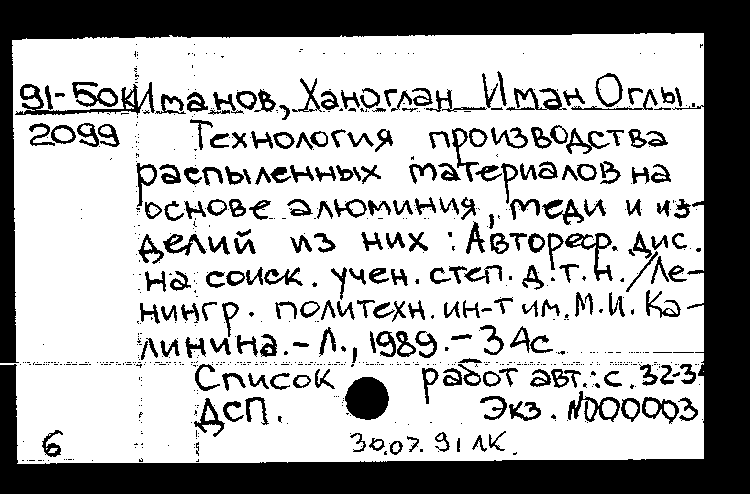 91-50к Иманов, Ханоглан Иман Оглы.
2099 Технология производства
распыленных материалов на
основе алюминия, меди и из-
делий из них : Автореф. дис.
на соиск. учен. степ. д.т.н. /Ле-
нингр. политехн. ин-т им. М.И. Ка-
линина. - Л., 1989. - 34с.
Список работ авт.: с. 32-34
ДСП. Экз. N000003
6 30.07.91 ЛК.